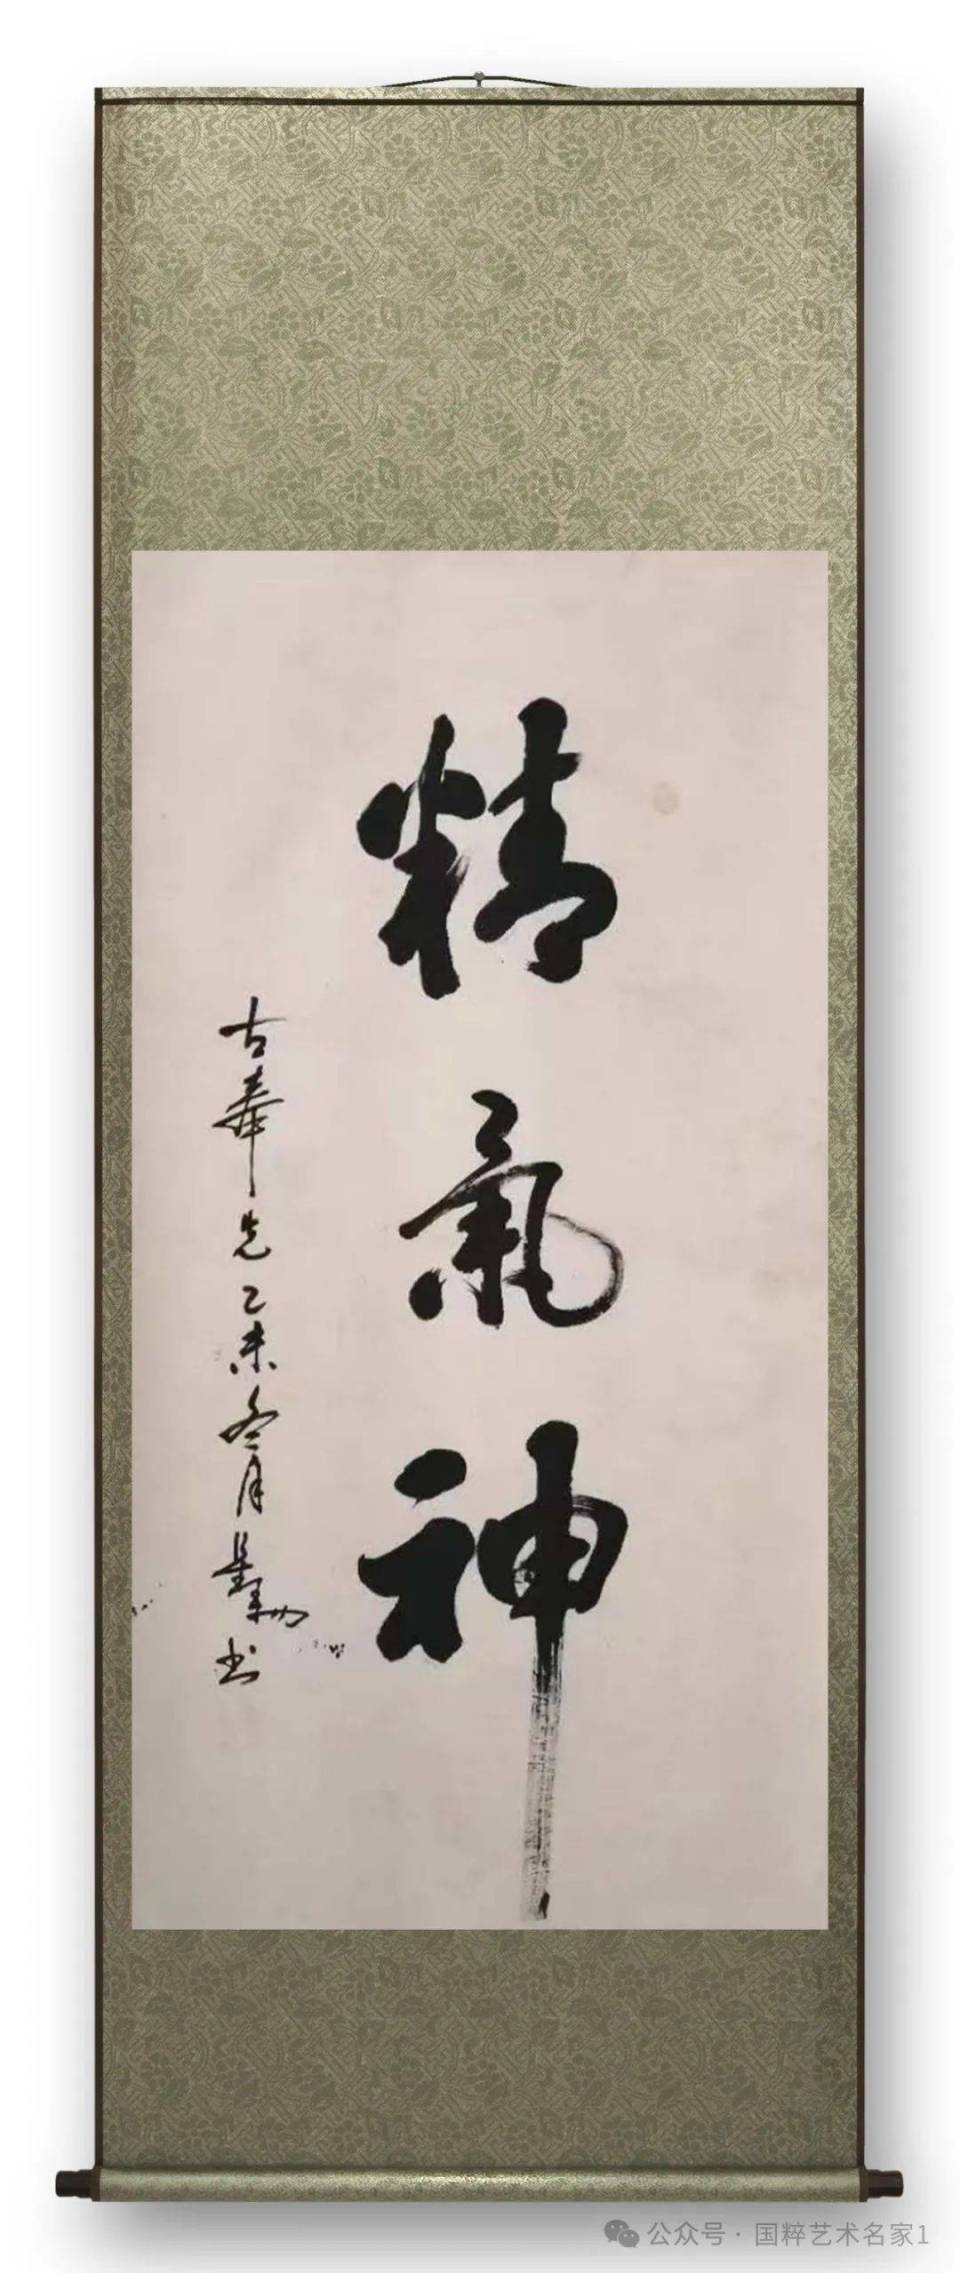 精氣神
乙未冬月
书
公众号 · 国粹艺术名家1